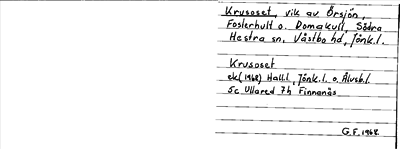 Krusoset, vik av Örsjön,
Foslerhult o. Domakull, Södra
Hestra sn, Våstbo hd, Jönk.l.
Krusoset
ek (1968) Hall.l, Jönk.l. o. Älvsb.l.
5c Ullared 7h Finnanäs
G.F. 1968